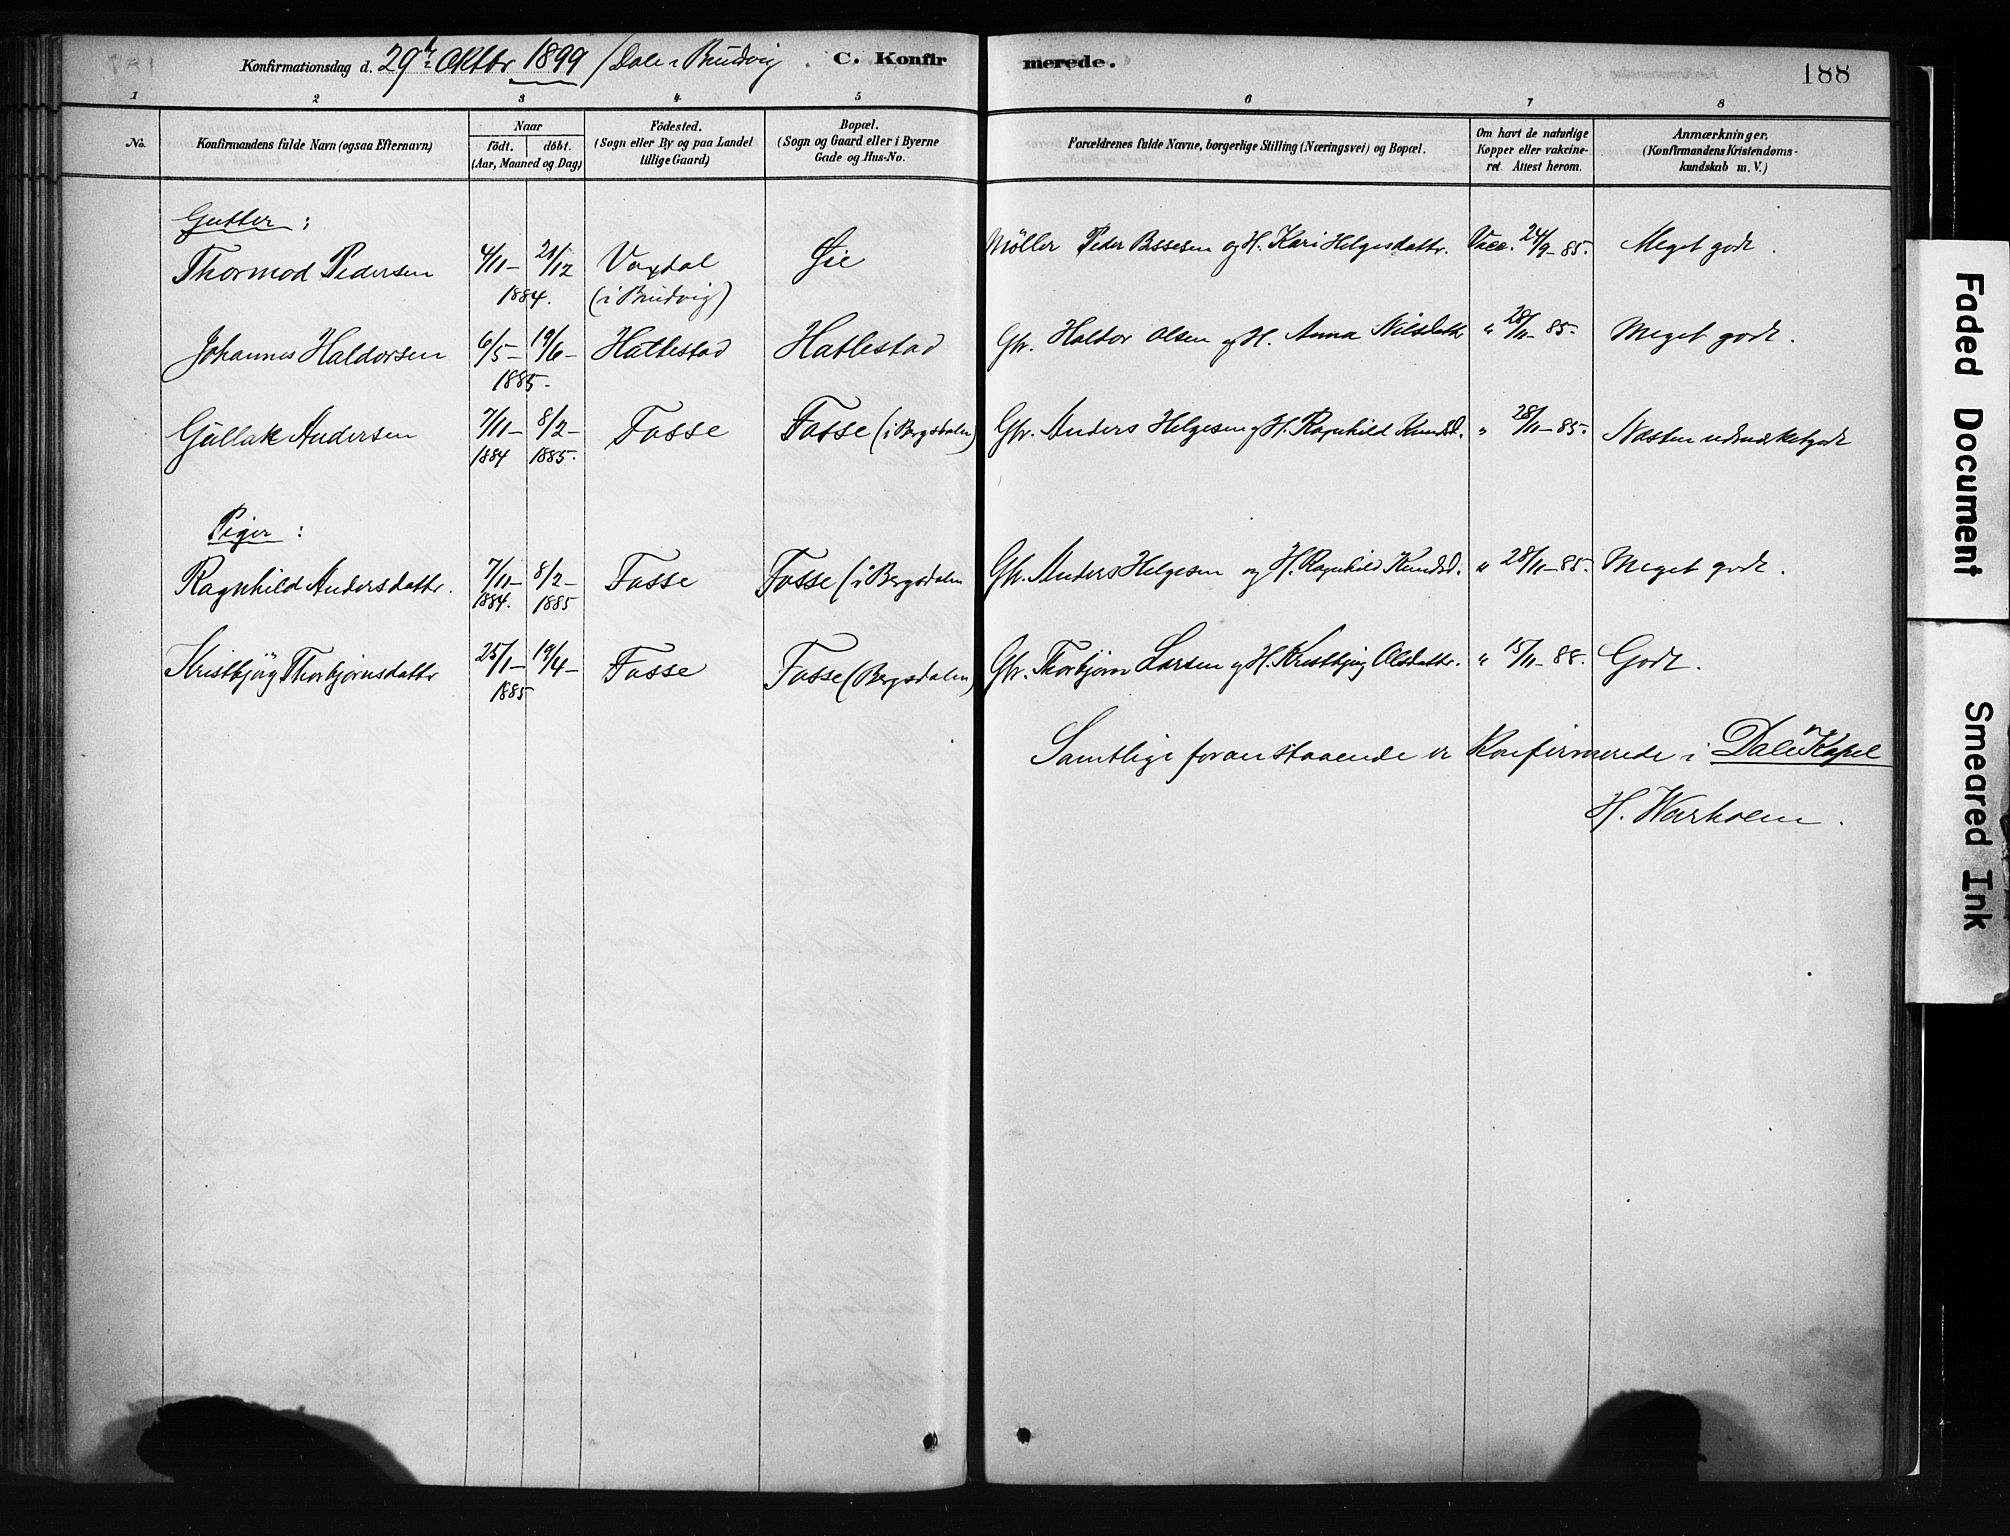 Konfirmationsdag d. 29de Oktbr 1899 / Dale i Brudvig C. Konfirmerede. 188
1 2 3 4 5 6 7 8
No. Konfirmandens fulde Navn (ogsaa Efternavn) Naar födt. döbt. (Aar, Maaned og Dag) Födested. (Sogn eller By og paa Landet tillige Gaard) Bopæl. (Sogn og Gaard eller i Byerne Gade og Hus-No. Forældrenes fulde Navne, borgerlige Stilling (Næringsvei) og Bopæl. Om havt de naturlige Kopper eller vakcineret. Attest herom. Anmærkninger. (Konfirmandens Kristendomskundskab m. V.)
Gutter:
Thormod Pedersen 4/11– 21/12 1884. Vaxdal (i Brudvig) Øie Møller Peder Bessesen og H. Kari Helgesdattr. Vacc. 24/9–85. Meget godt.
Johannes Haldorsen 6/5– 19/6– 1885. Hatlestad Hatlestad Gbr. Haldor Olsen og H. Anna Nilsdattr " 28/11 85. Meget godt.
Gullak Andersen 7/11– 1884 8/2– 1885. Fosse Fosse (i Bergsdalen) Gbr. Anders Helgesen og H. Ragnhild Knudsd. " 28/11–85. Næsten udmærketgodt
Piger:
Ragnhild Andersdattr. 7/11– 1884. 8/2– 1885 Fosse Fosse (i Bergsdalen Gbr. Anders Helgesen og H. Ragnhild Knudsd. " 28/11–85. Meget godt.
Kristbjøg Thorbjørnsdattr 25/1– 19/4– 1885 Fosse Fosse (Bergsdalen) Gbr. Thorbjørn Larsen og H. Kristbjøg Olsdattr. " 15/11–88. Godt.
Samtlige foranstaaende er konfirmerede i Dale Kapel
H. Warholm.
Faded Document
Smeared Ink